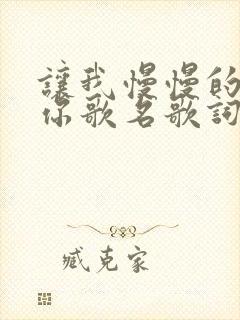 讓我慢慢的
你歌名歌詞
臧克家